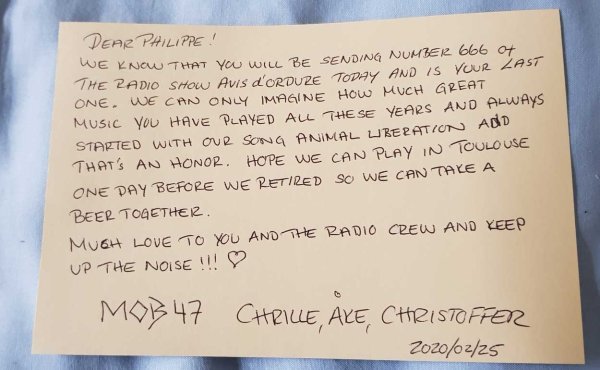 DEAR PHILIPPE!
WE KNOW THAT YOU WILL BE SENDING NUMBER 666 OF
THE RADIO SHOW AVIS D'ORDURE TODAY AND IS YOUR LAST
ONE. WE CAN ONLY IMAGINE HOW MUCH GREAT
MUSIC YOU HAVE PLAYED ALL THESE YEARS AND ALWAYS
STARTED WITH OUR SONG ANIMAL LIBERATION AND
THAT'S AN HONOR. HOPE WE CAN PLAY IN TOULOUSE
ONE DAY BEFORE WE RETIRED SO WE CAN TAKE A
BEER TOGETHER.
MUCH LOVE TO YOU AND THE RADIO CREW AND KEEP
UP THE NOISE!!! ♡
MOB 47 CHRILLE, ÅKE, CHRISTOFFER
2020/02/25